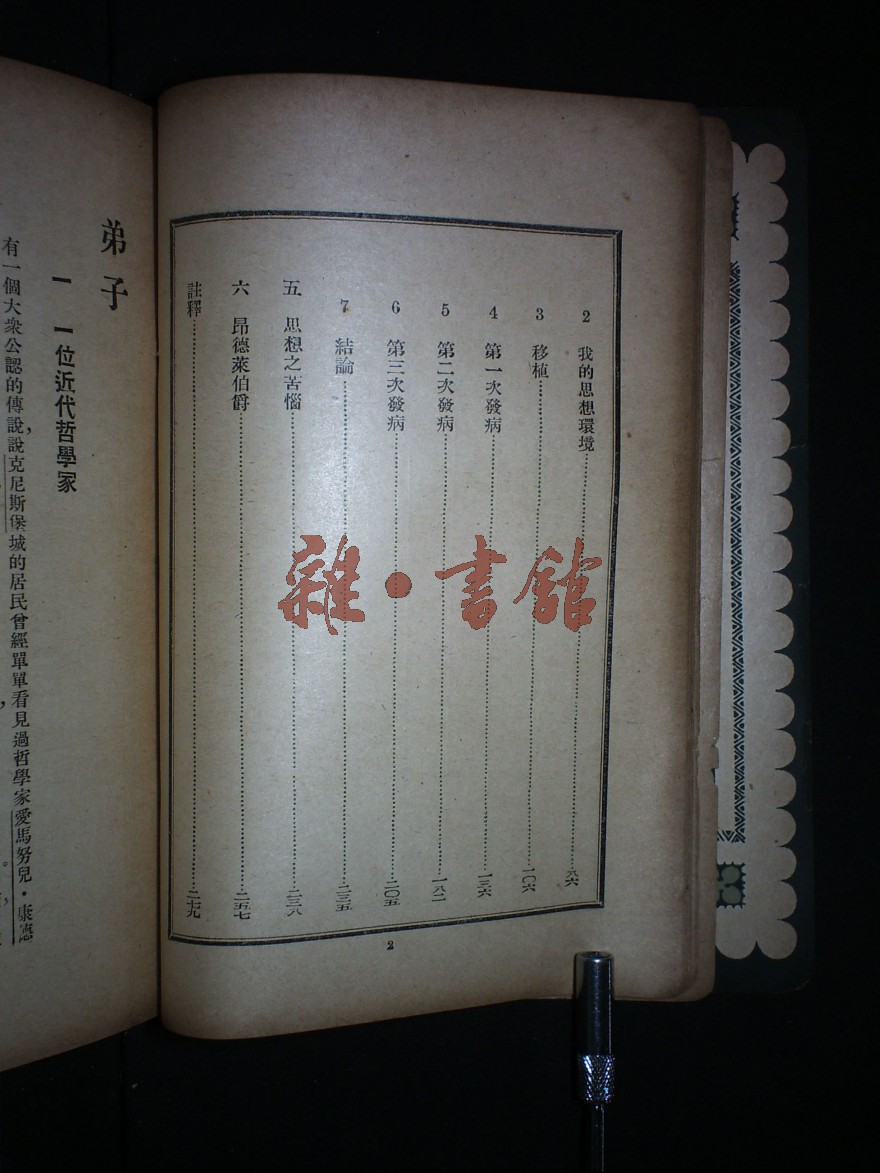 2 我的思想環境 八六
3 移植 一〇六
4 第一次發病 一三六
5 第二次發病 一八二
6 第三次發病 二〇五
7 結論 二三五
五 思想之苦惱 二三八
六 昂德萊伯爵 二五七
註釋 二七九
2
雜·書館
弟子
一 一位近代哲學家
有一個大衆公認的傳說，說克尼斯堡城的居民曾經單單看見過哲學家愛馬努兒·康德